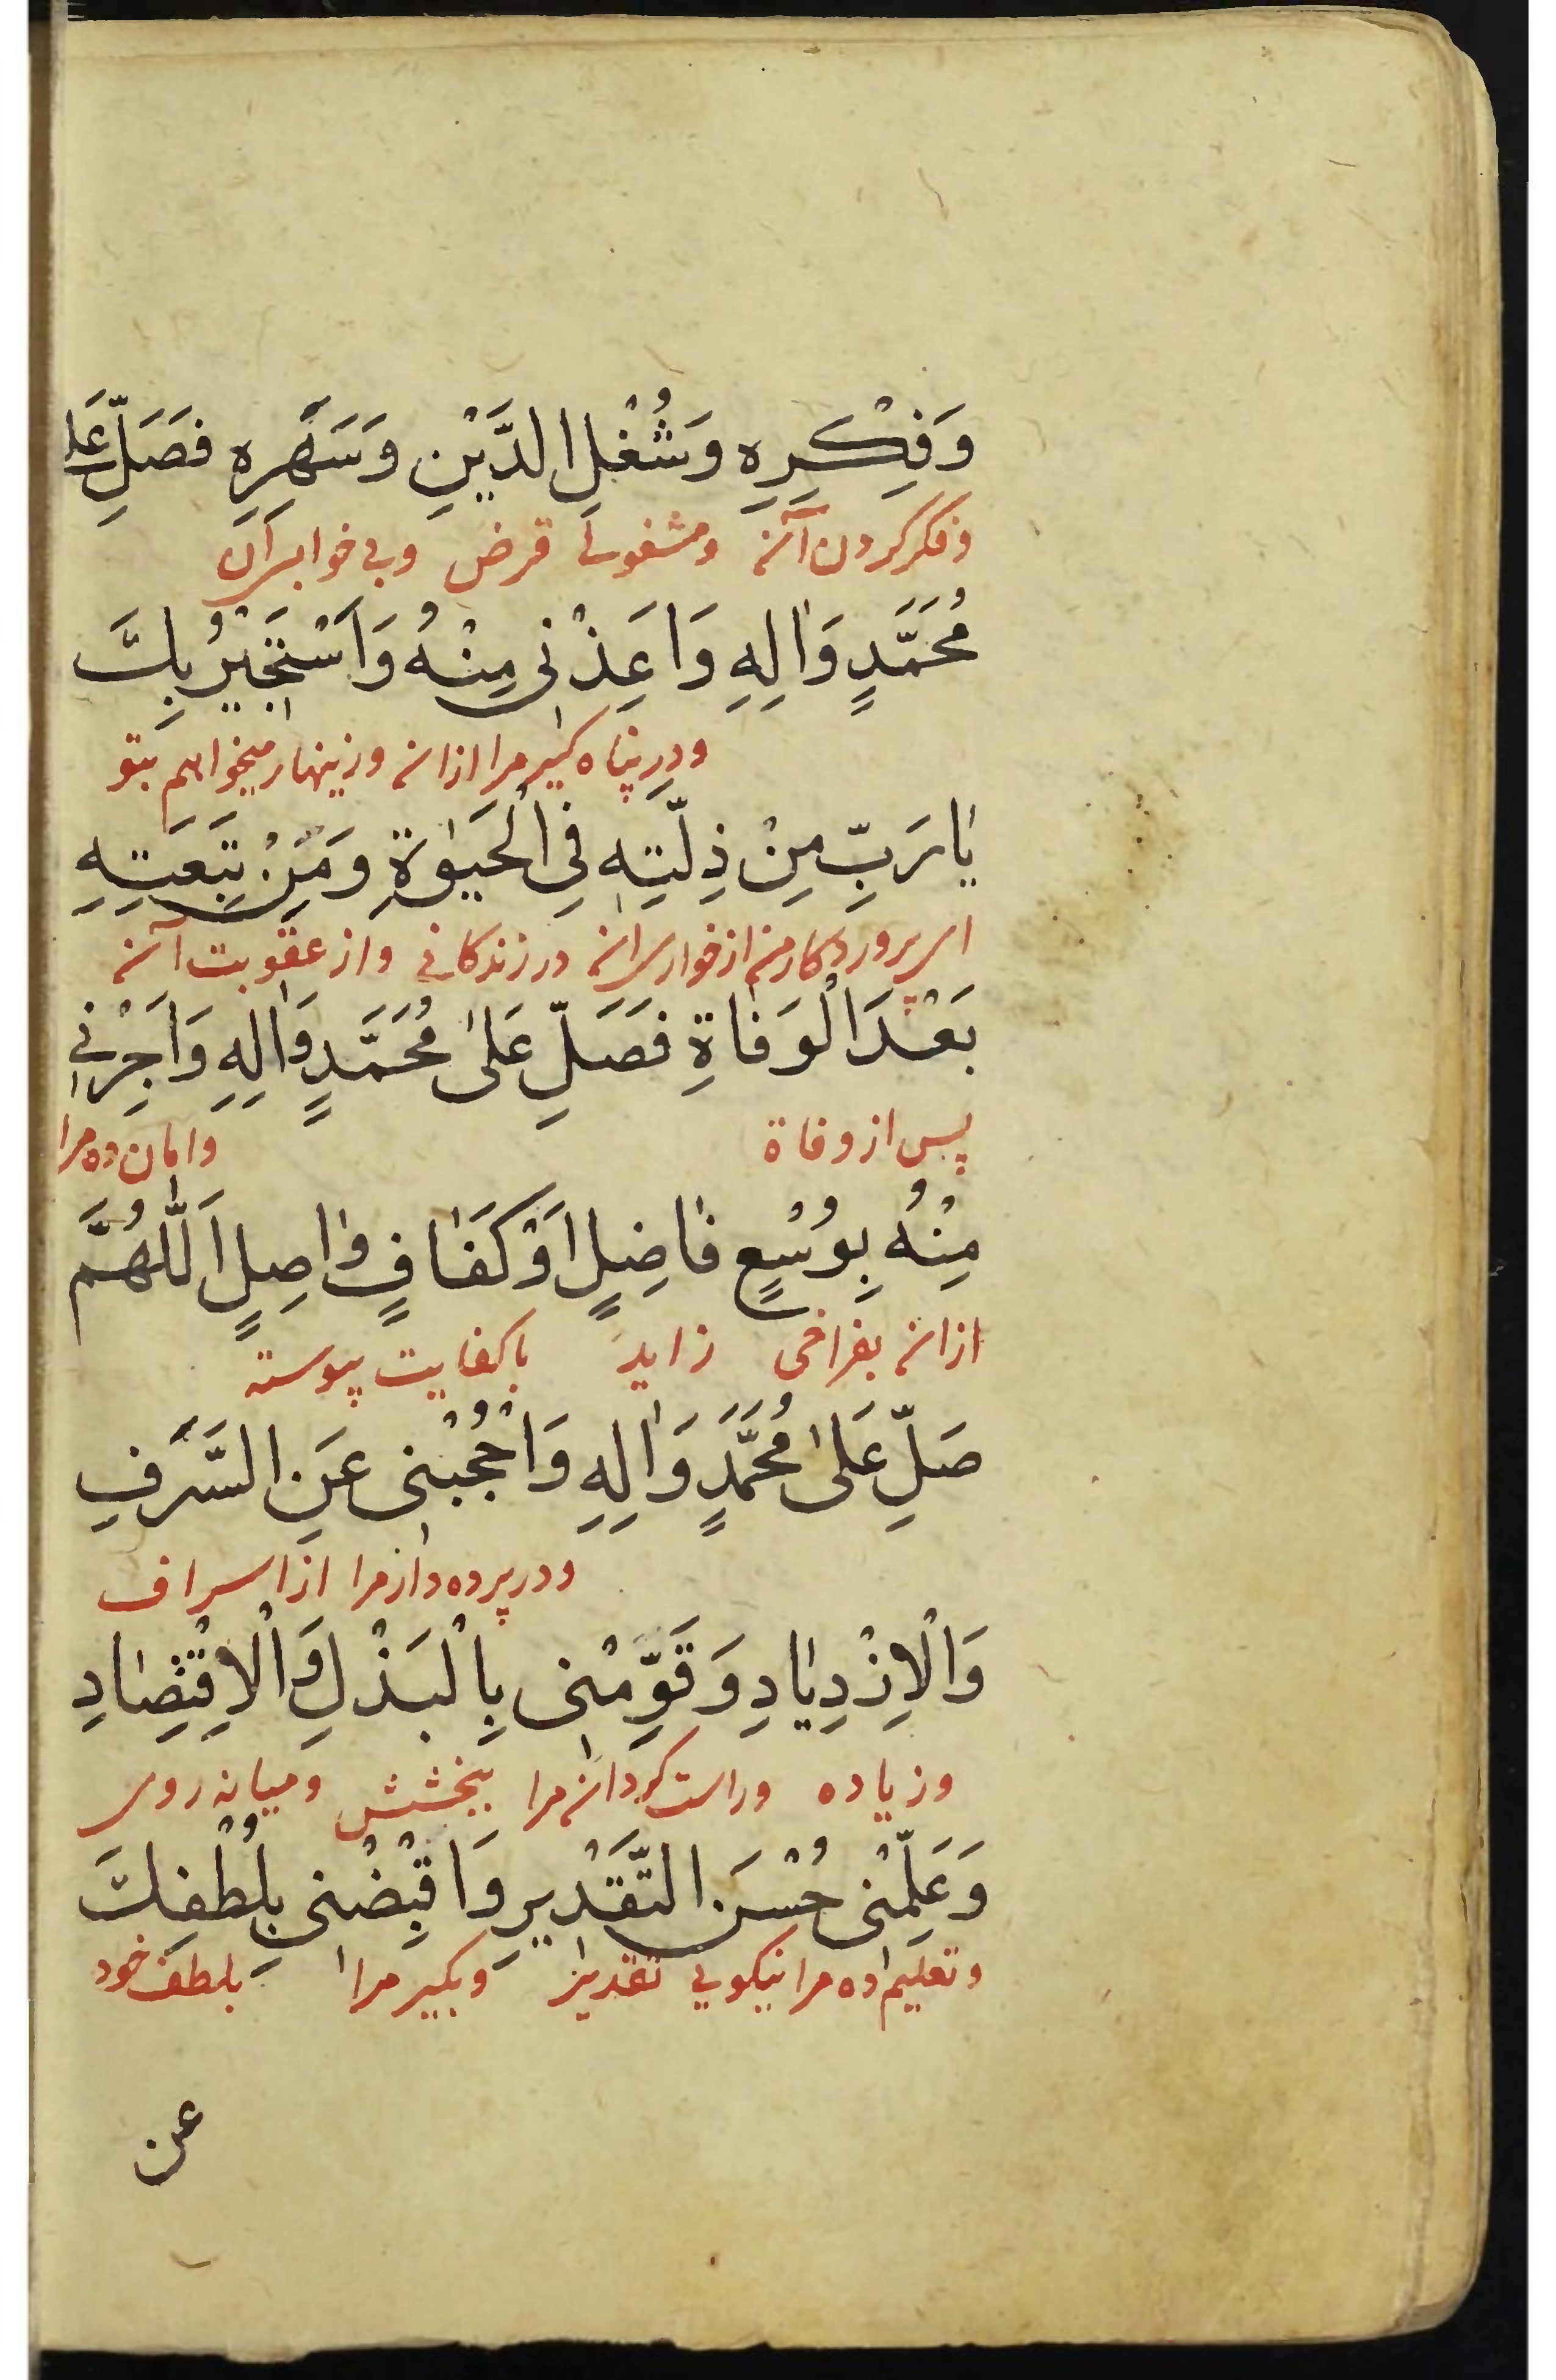 وَفِكْرِهِ وَشُغْلِ الدَّيْنِ وَسَهَرِهِ فَصَلِّ عَلٰی
وفکر کردن آنه ومشغولی قرض وبی خوابی آن
مُحَمَّدٍ وَاٰلِهِ وَاَعِذْنی مِنْهُ وَاَسْتَجٖیرُ بِكَ
ودر پناه گیر مرا ازانه وزینهار میخواهم بتو
یٰا رَبِّ مِنْ ذِلَّتِهٖ فِی الْحَیٰوةِ وَمِنْ تَبِعَتِهِ
ای پروردگار من از خواری انه در زندگانی واز عقوبت آنه
بَعْدَ الْوَفٰاةِ فَصَلِّ عَلیٰ مُحَمَّدٍ وَاٰلِهِ وَاَجِرْنٖی
پس از وفاة وامان ده مرا
مِنْهُ بِوُسْعٍ فٰاضِلٍ اَوْ كَفٰافٍ وٰاصِلٍ اَللّٰهُمَّ
ازانه بفراخی زاید یا کفایت پیوسته
صَلِّ عَلیٰ مُحَمَّدٍ وَاٰلِهِ وَاحْجُبْنٖی عَنِ السَّرَفِ
ودر پرده دار مرا از اسراف
وَالْاِزْدِیٰادِ وَقَوِّمْنٖی بِالْبَذْلِ وَالْاِقْتِصٰادِ
وزیاده وراست گردانه مرا ببخشش ومیانه روی
وَعَلِّمْنٖی حُسْنَ التَّقْدٖیرِ وَاقْبِضْنٖی بِلُطْفِكَ
وتعلیم ده مرا نیکویی تقدیر وبگیر مرا بلطف خود
عن